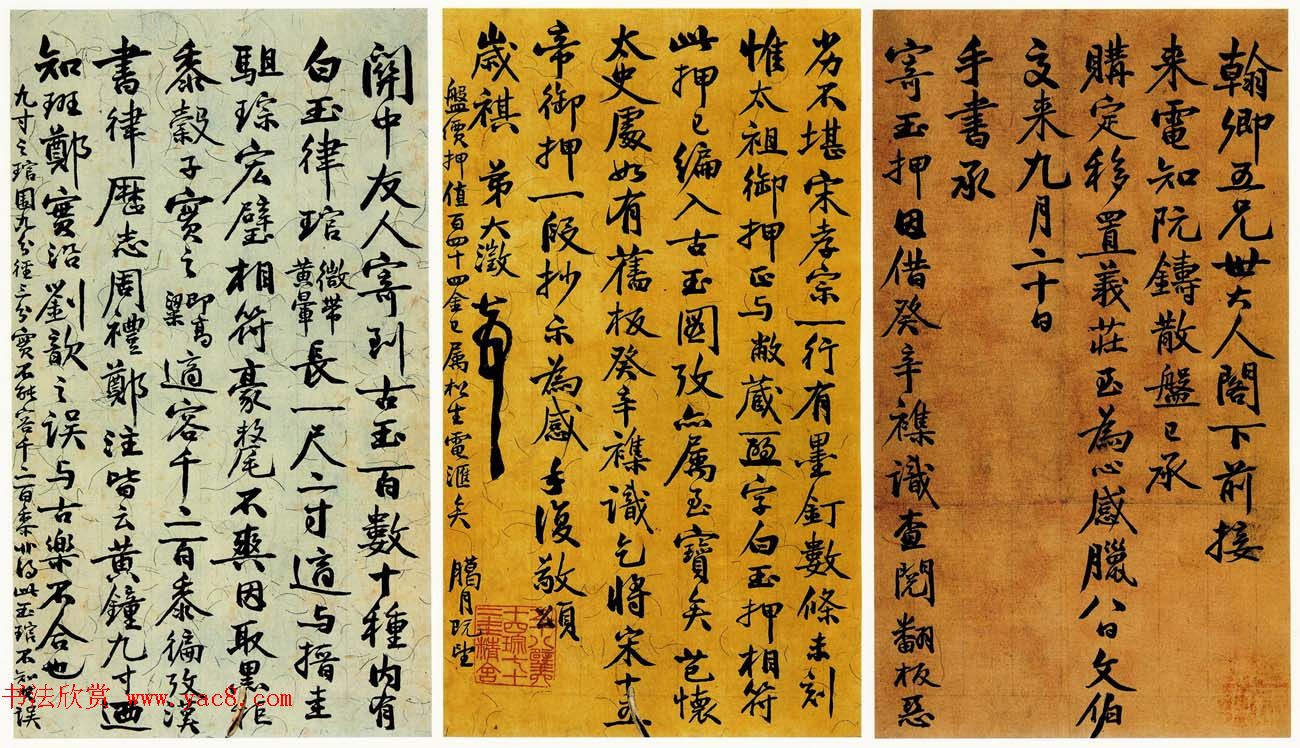 翰卿五兄世大人閣下前接
来電知阮鑄散盤已承
購定移置義莊至為心感臘八日文伯
交来九月二十日
手書承
寄玉押因借癸辛襍識查閱翻板惡
劣不堪宋孝宗一行有墨釘數條未刻
惟太祖御押正与敝藏 字白玉押相符
此押已編入古玉圖攷亦属至寶矣芑懷
太史處如有舊板癸辛襍識乞將宋十五
帝御押一段抄示為感手復敬頌
歲祺 弟大澂
臘月既望
盤價押值百四十四金已属松生電滙矣
關中友人寄到古玉百數十種内有
白玉律琯微带黄暈長一尺二寸適与搢圭
駔琮宏璧相符豪釐不爽因取黑秬
黍穀子實之即高粱適容千二百黍徧攷漢
書律歷志周禮鄭注皆云黄鐘九寸迺
知班鄭實沿劉歆之誤与古樂不合也
九寸之琯圍九分徑三分實不能容千二百黍非得此玉琯不知其誤
书法欣赏 www.yac8.com